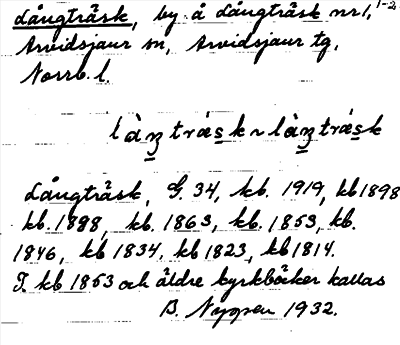 Långträsk, by å Långträsk nr 1, 1-2
Arvidsjaur sn, Arvidsjaur tg,
Norrb. l.
làŋtrásk ~ làŋtrásk
Långträsk, G. 34, kb. 1919, kb 1898
kb. 1898, kb. 1863, kb. 1853, kb.
1846, kb 1834, kb 1823, kb 1814.
I kb 1853 och äldre kyrkböcker kallas
B. Nyppen 1932.